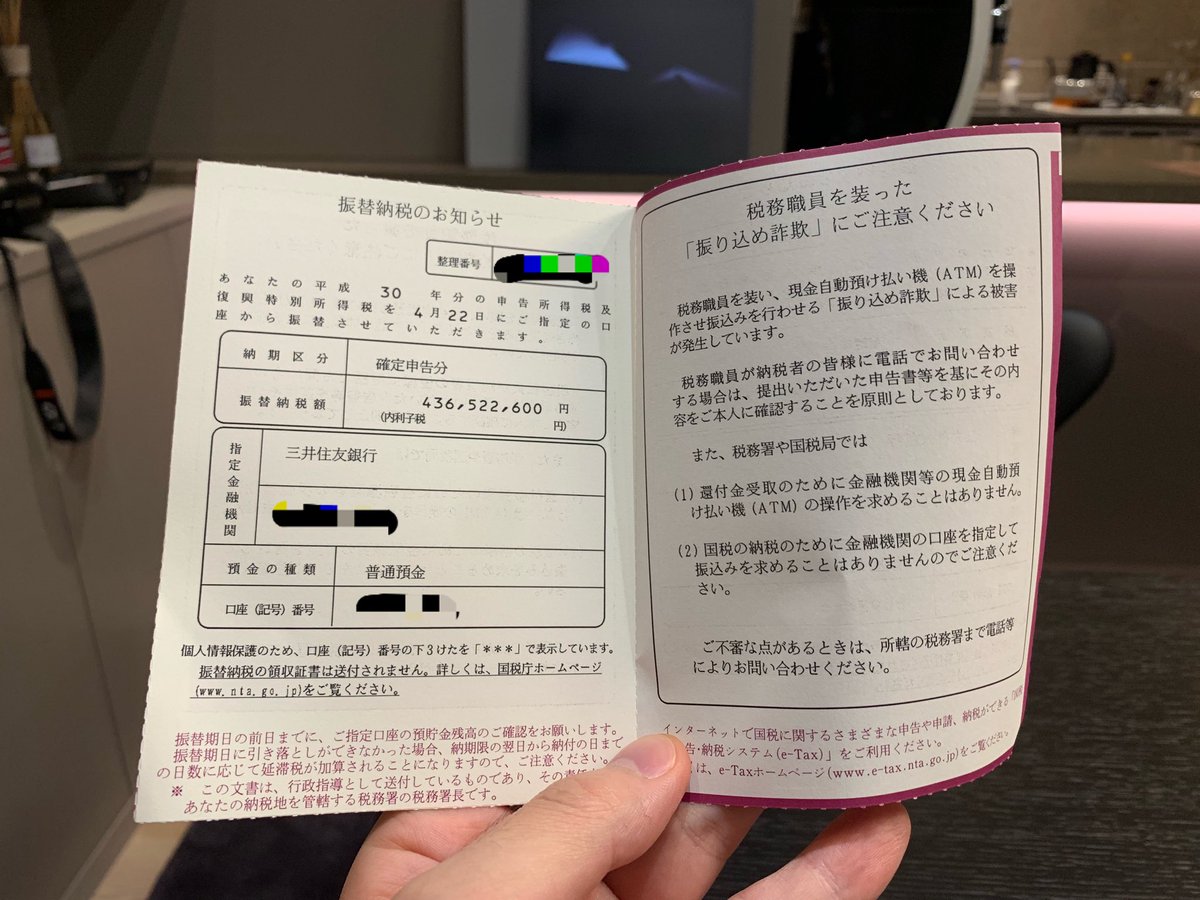 振替納税のお知らせ
整理番号
あなたの平成 30 年分の申告所得税及
復興特別所得税を 4月22日にご指定の口
座から振替させていただきます。
納期区分 確定申告分
振替納税額 436,522,600 円
(内利子税 円)
指定金融機関 三井住友銀行
預金の種類 普通預金
口座(記号)番号
個人情報保護のため、口座(記号)番号の下3けたを「***」で表示しています。
振替納税の領収証書は送付されません。詳しくは、国税庁ホームページ
(www.nta.go.jp)をご覧ください。
振替期日の前日までに、ご指定口座の預貯金残高のご確認をお願いします。
振替期日に引き落としができなかった場合、納期限の翌日から納付の日まで
の日数に応じて延滞税が加算されることになりますので、ご注意ください。
※ この文書は、行政指導として送付しているものであり、その責任
あなたの納税地を管轄する税務署の税務署長です。
税務職員を装った
「振り込め詐欺」にご注意ください
税務職員を装い、現金自動預け払い機(ATM)を操
作させ振込みを行わせる「振り込め詐欺」による被害
が発生しています。
税務職員が納税者の皆様に電話でお問い合わせ
する場合は、提出いただいた申告書等を基にその内
容をご本人に確認することを原則としております。
また、税務署や国税局では
(1) 還付金受取のために金融機関等の現金自動預
け払い機(ATM)の操作を求めることはありません。
(2) 国税の納税のために金融機関の口座を指定して
振込みを求めることはありませんのでご注意くだ
さい。
ご不審な点があるときは、所轄の税務署まで電話等
によりお問い合わせください。
インターネットで国税に関するさまざまな申告や申請、納税ができる「国税
告・納税システム(e-Tax)」をご利用ください。
は、e-Taxホームページ(www.e-tax.nta.go.jp)をご覧ください。